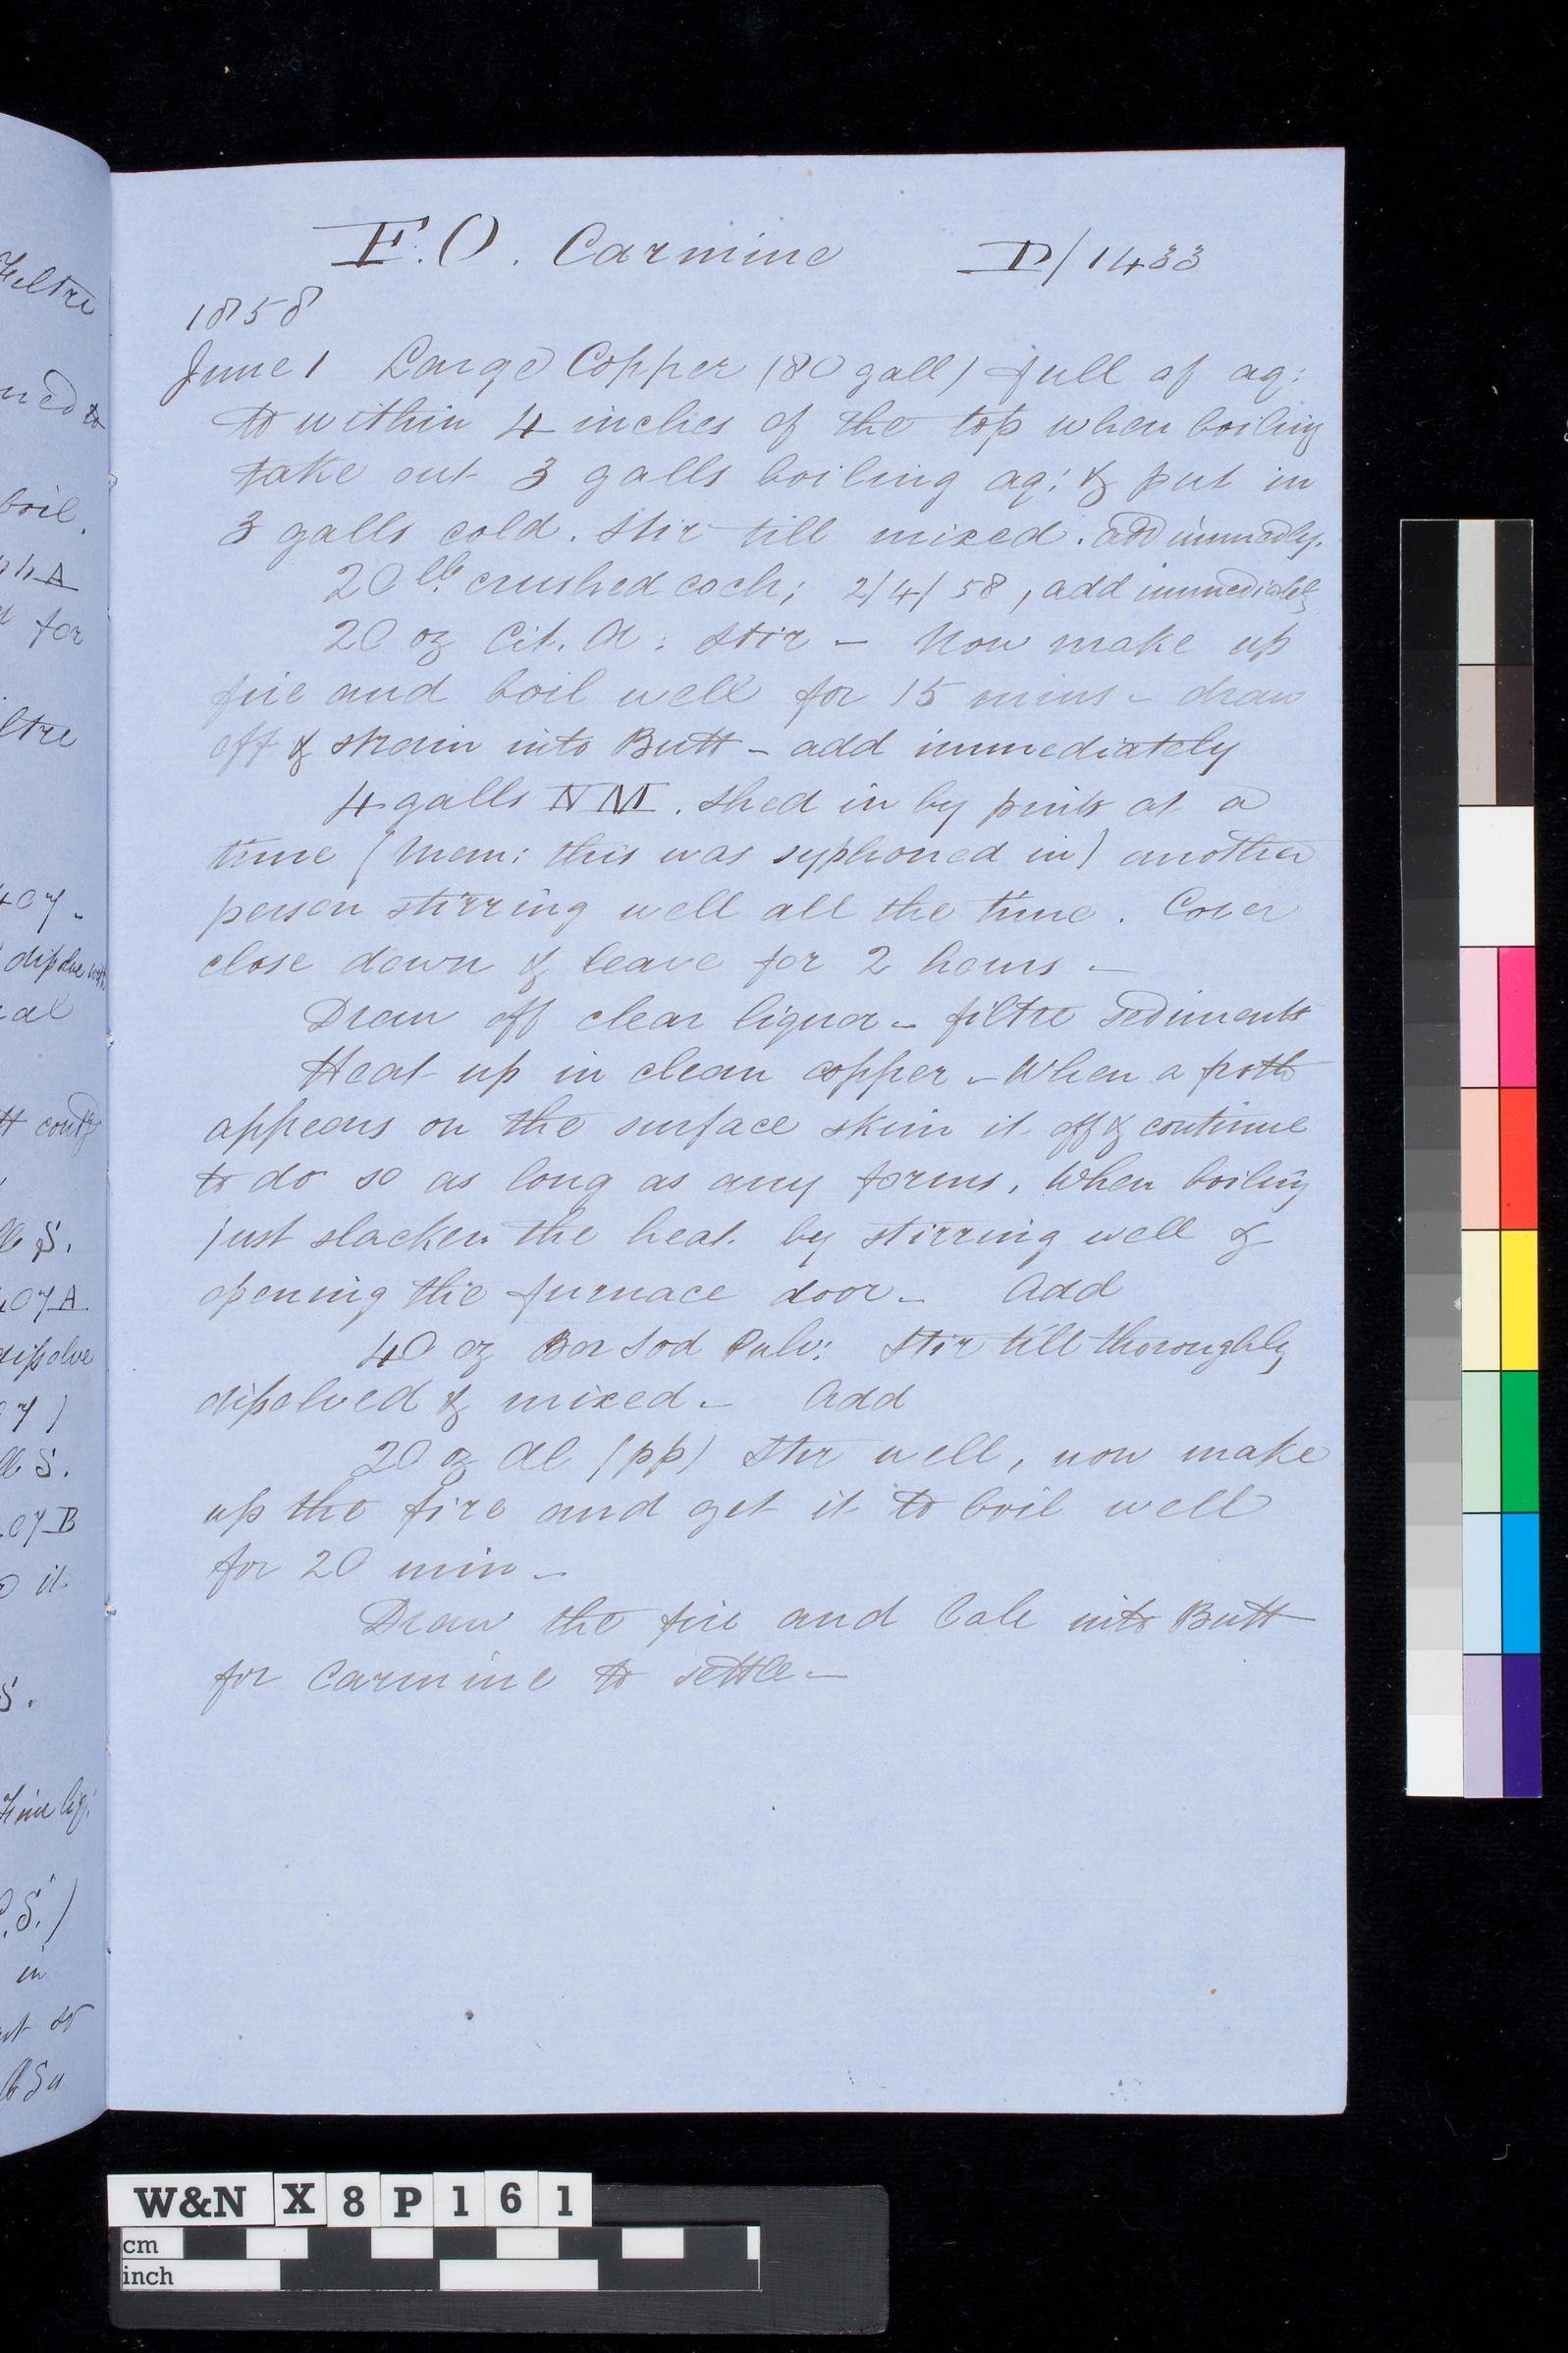 Filtre
boil.
for
ltre
dissolve with
al
dissolve
S.
it
S.
in
F.O. Carmine D/1433
1858
June 1 Large Copper (80 gall) full of aq:
to within 4 inches of the top when boiling
take out 3 galls boiling aq: & put in
3 galls cold. Stir till mixed. add immedly.
20 lb. crushed coch; 2/4/58, add immediately
20 oz Cit. A: Stir – Now make up
fire and boil well for 15 mins – draw
off & strain into Butt – add immediately
4 galls NM. shed in by pints at a
time (Mem: this was syphoned in) another
person stirring well all the time. Cover
close down & leave for 2 hours –
Draw off clear liquor – filtre sediments
Heat up in clean copper – When a froth
appears on the surface skim it off & continue
to do so as long as any forms. When boiling
just slacken the heat by stirring well &
opening the furnace door – Add
40 oz Bor Sod Pulv: Stir till thoroughly
dissolved & mixed – Add
20 oz Al (pp) Stir well, now make
up the fire and get it to boil well
for 20 min –
Draw the fire and bale into Butt
for Carmine to settle –
W&N X8P161
cm
inch